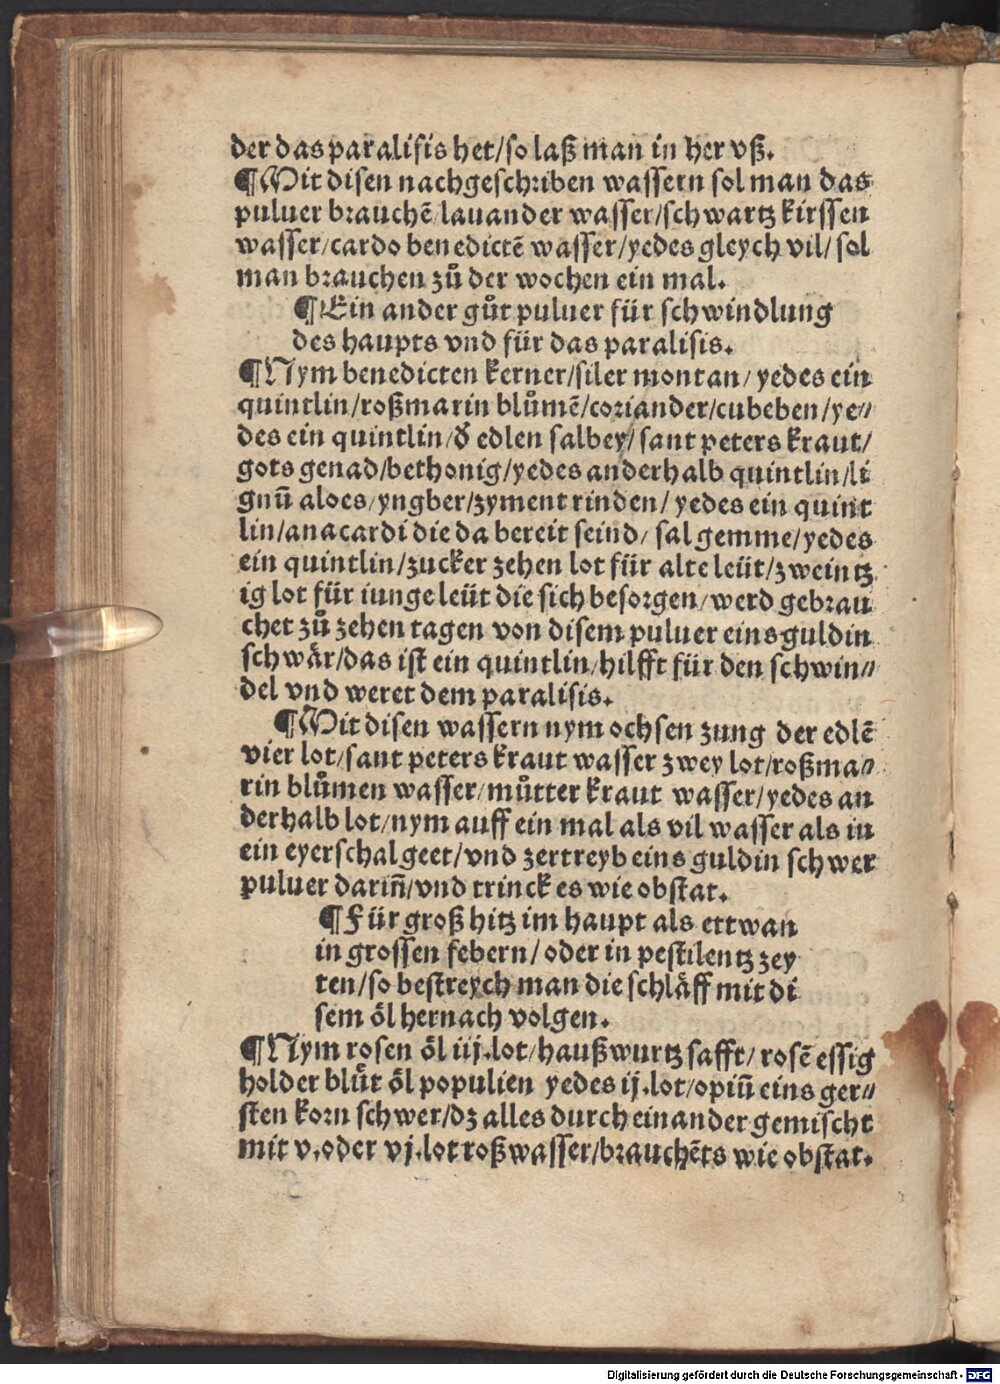 der das paralisis het/so laß man in her vß.
¶Mit disen nachgeschriben wassern sol man das
puluer brauchē lauander wasser/schwartz kirssen
wasser/cardo benedictē wasser/yedes gleych vil/sol
man brauchen zů der wochen ein mal.
¶Ein ander gůt puluer für schwindlung
des haupts vnd für das paralisis.
¶Nym benedicten kerner/siler montan/yedes ein
quintlin/roßmarin blůmē/coriander/cubeben/ye⸗
des ein quintlin/ď edlen salbey/sant peters kraut/
gots genad/bethonig/yedes anderhalb quintlin/li
gnū aloes/yngber/zyment rinden/yedes ein quint
lin/anacardi die da bereit seind/sal gemme/yedes
ein quintlin/zucker zehen lot für alte leüt/zweintz
ig lot für iunge leüt die sich besorgen/werd gebrau
chet zů zehen tagen von disem puluer eins guldin
schwär/das ist ein quintlin/hilfft für den schwin⸗
del vnd weret dem paralisis.
¶Mit disen wassern nym ochsen zung der edlē
vier lot/sant peters kraut wasser zwey lot/roßma⸗
rin blůmen wasser/můtter kraut wasser/yedes an
derhalb lot/nym auff ein mal als vil wasser als in
ein eyerschal geet/vnd zertreyb eins guldin schwer
puluer dariñ/vnd trinck es wie obstat.
¶Für groß hitz im haupt als ettwan
in grossen febern/oder in pestilentz zey
ten/so bestreych man die schläff mit di
sem öl hernach volgen.
¶Nym rosen öl iij.lot/haußwurtz safft/rosē essig
holder blůt öl populien yedes ij.lot/opiū eins ger⸗
sten korn schwer/dz alles durch einander gemischt
mit v.oder vj.lot roßwasser/brauchēts wie obstat.
Digitalisierung gefördert durch die Deutsche Forschungsgemeinschaft - DFG